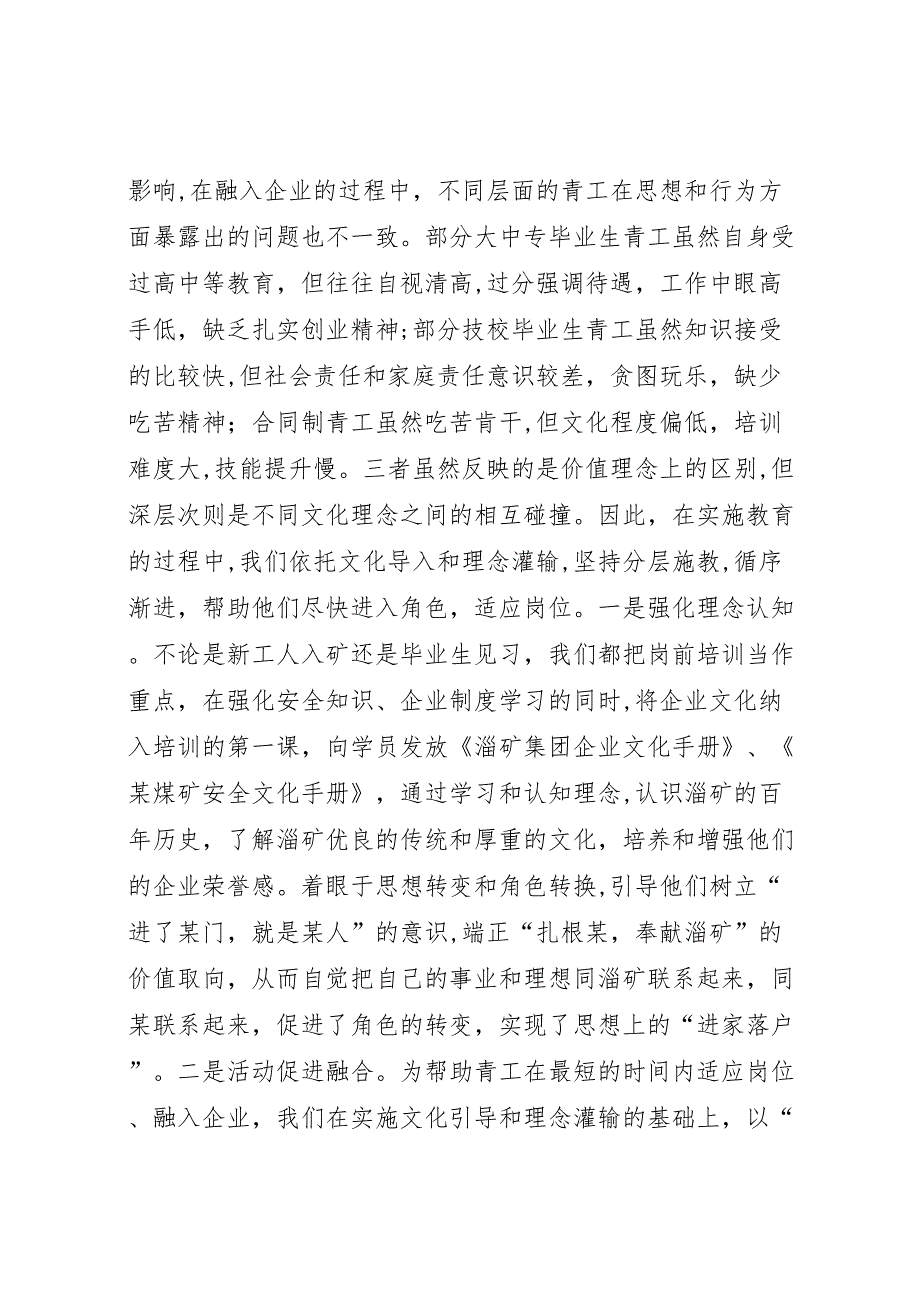 影响,在融入企业的过程中，不同层面的青工在思想和行为方
面暴露出的问题也不一致。部分大中专毕业生青工虽然自身受
过高中等教育，但往往自视清高,过分强调待遇，工作中眼高
手低，缺乏扎实创业精神;部分技校毕业生青工虽然知识接受
的比较快,但社会责任和家庭责任意识较差，贪图玩乐，缺少
吃苦精神；合同制青工虽然吃苦肯干,但文化程度偏低，培训
难度大,技能提升慢。三者虽然反映的是价值理念上的区别,但
深层次则是不同文化理念之间的相互碰撞。因此，在实施教育
的过程中,我们依托文化导入和理念灌输,坚持分层施教,循序
渐进，帮助他们尽快进入角色，适应岗位。一是强化理念认知
。不论是新工人入矿还是毕业生见习，我们都把岗前培训当作
重点，在强化安全知识、企业制度学习的同时,将企业文化纳
入培训的第一课，向学员发放《淄矿集团企业文化手册》、《
某煤矿安全文化手册》，通过学习和认知理念,认识淄矿的百
年历史，了解淄矿优良的传统和厚重的文化，培养和增强他们
的企业荣誉感。着眼于思想转变和角色转换,引导他们树立“
进了某门，就是某人”的意识,端正“扎根某，奉献淄矿”的
价值取向，从而自觉把自己的事业和理想同淄矿联系起来，同
某联系起来，促进了角色的转变，实现了思想上的“进家落户
”。二是活动促进融合。为帮助青工在最短的时间内适应岗位
、融入企业，我们在实施文化引导和理念灌输的基础上，以“